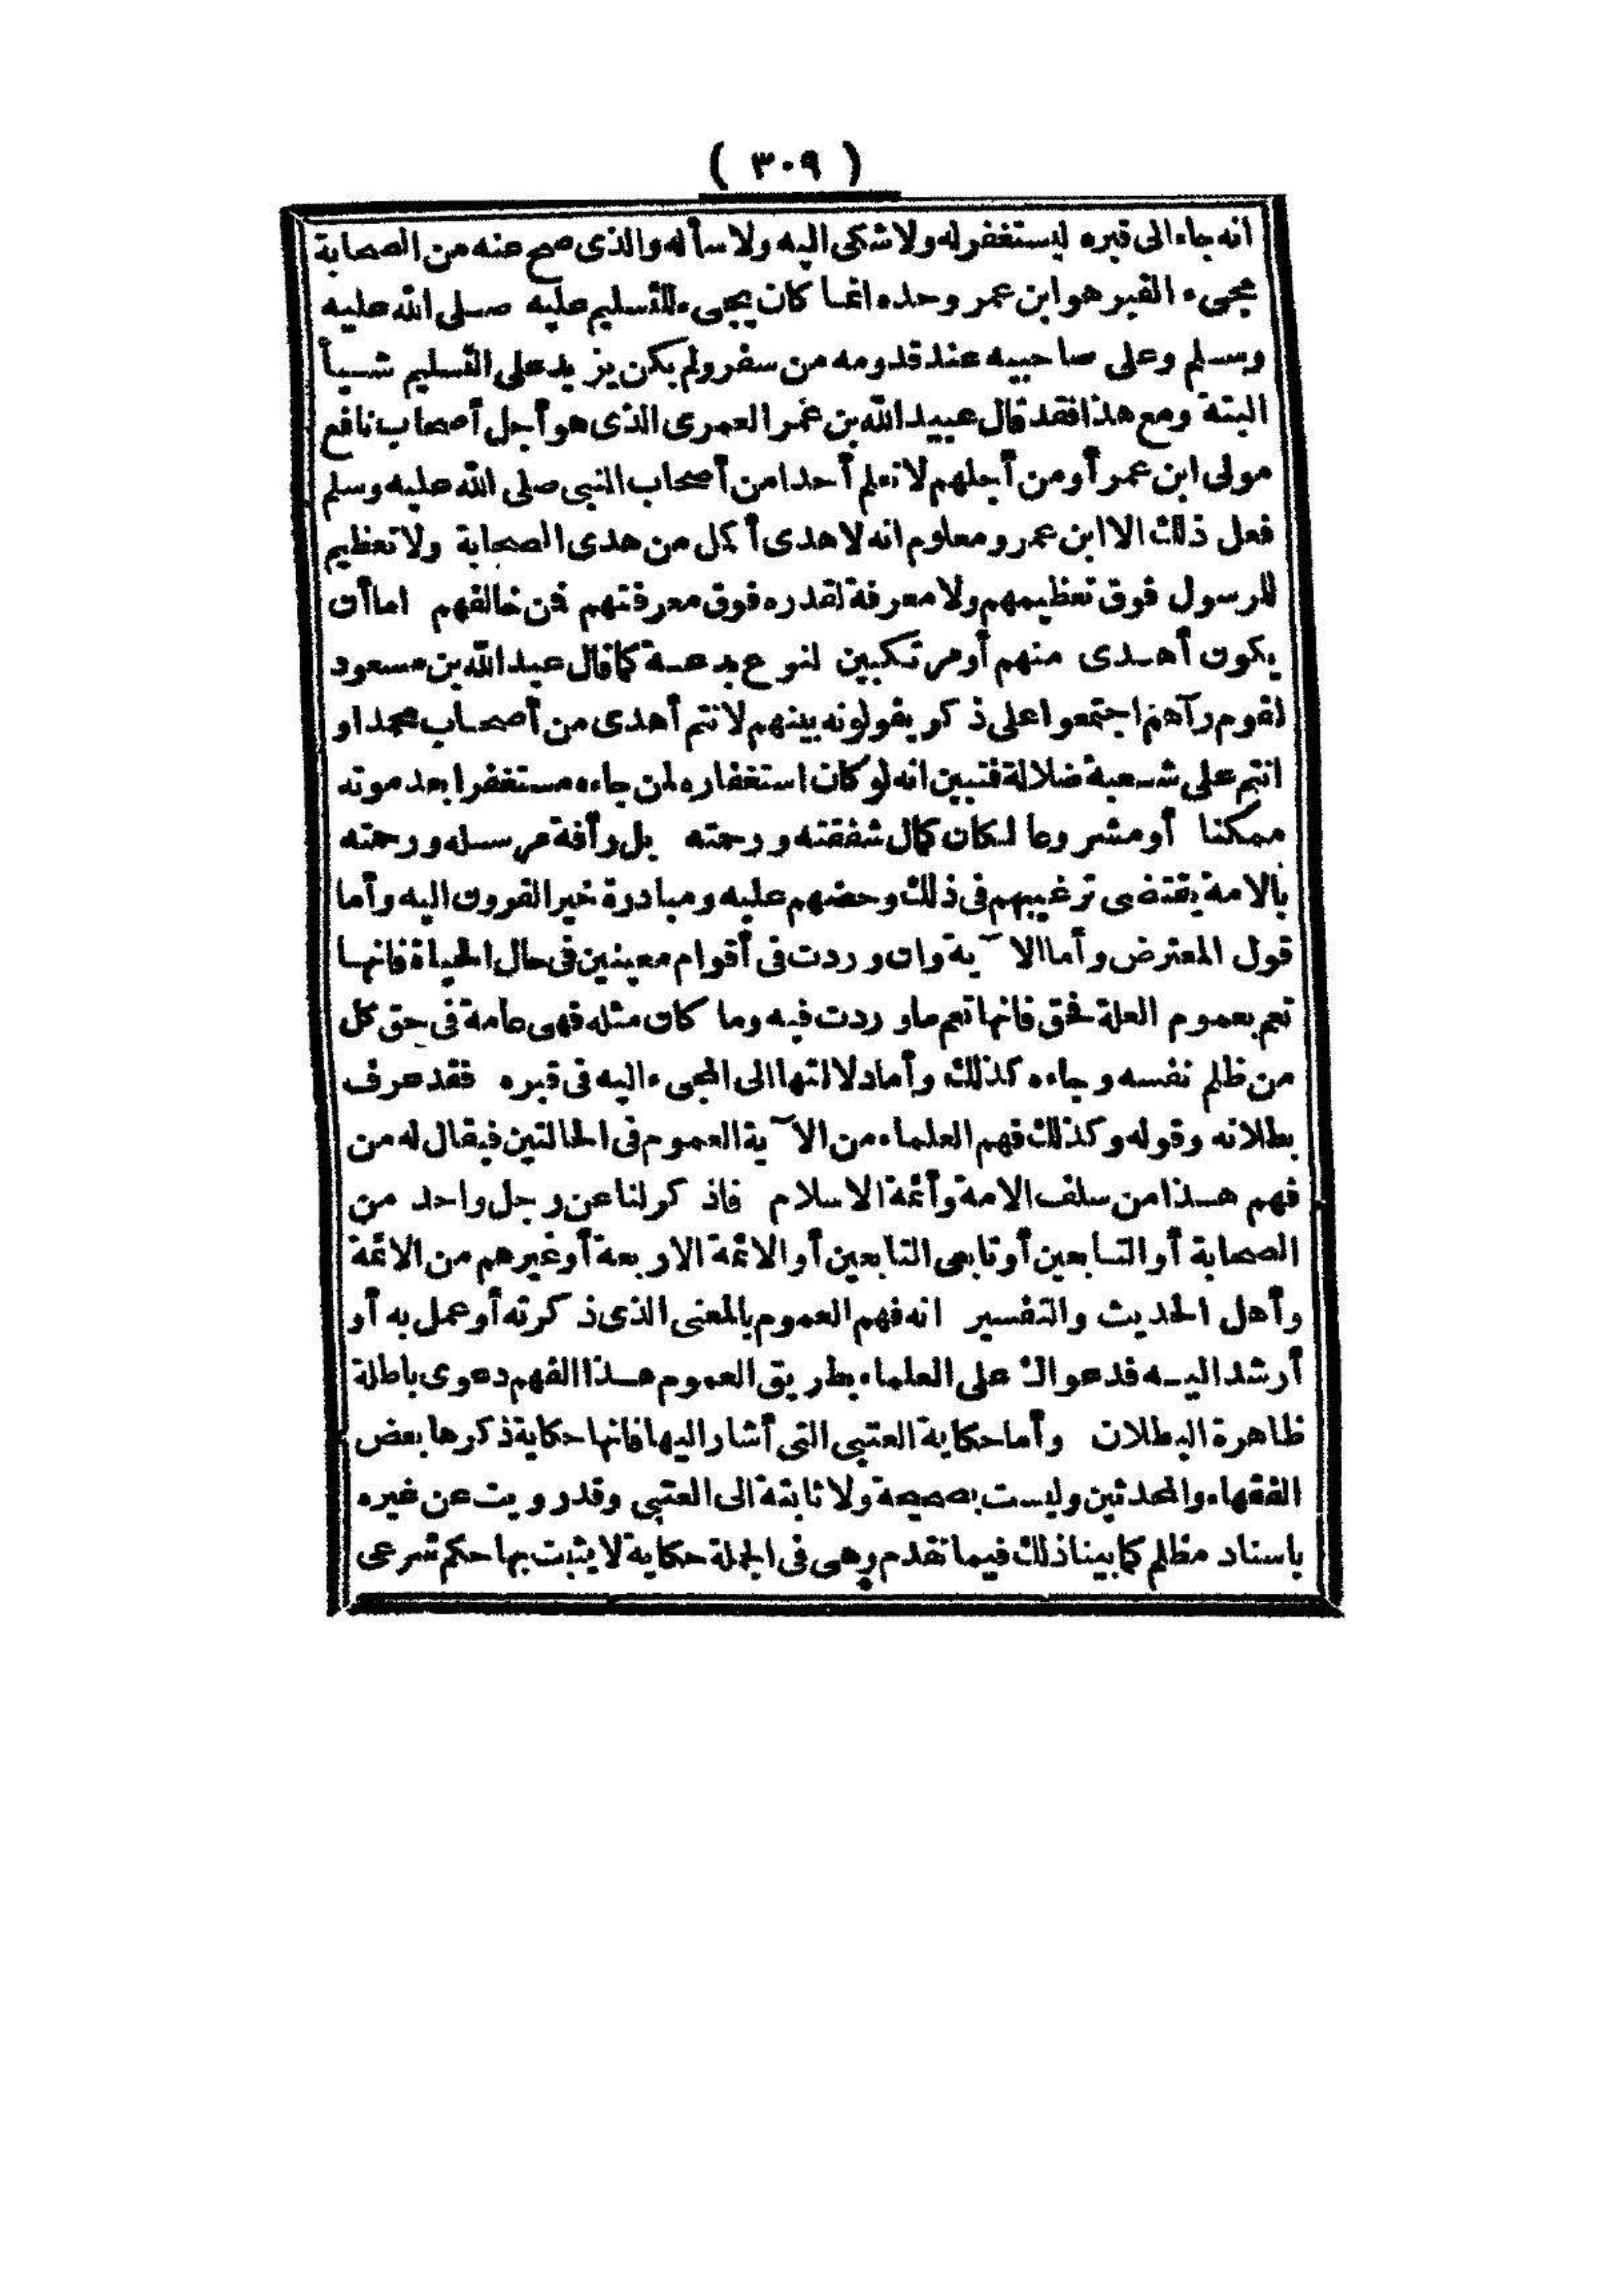 ( ٣٠٩ )
انه جاء الى قبره ليستغفر له ولا شكى اليه ولا سأله والذى صح عنه من الصحابة
مجىء القبر هو ابن عمر وحده انما كان يجىء للتسليم عليه صلى الله عليه
وسلم وعلى صاحبيه عند قدومه من سفر ولم يكن يزيد على التسليم شيأ
البتة ومع هذا فقد قال عبيد الله بن عمر العمرى الذى هو أجل أصحاب نافع
مولى ابن عمر أو من أجلهم لا نعلم أحدا من أصحاب النبى صلى الله عليه وسلم
فعل ذلك الا ابن عمر ومعلوم انه لا هدى أكمل من هدى الصحابة ولا تعظيم
للرسول فوق تعظيمهم ولا معرفة لقدره فوق معرفتهم فمن خالفهم اما أن
يكون أهدى منهم أو مرتكبين لنوع بدعة كما قال عبد الله بن مسعود
لقوم رآهم اجتمعوا على ذكر يقولونه بينهم لانتم أهدى من أصحاب محمد او
انتم على شعبة ضلالة فتبين انه لو كان استغفاره لمن جاءه مستغفرا بعد موته
ممكنا أو مشروعا لكان كمال شفقته ورحمته بل رأفة مرسله ورحمته
بالامة يقتضى ترغيبهم فى ذلك وحضهم عليه ومبادرة خير القرون اليه وأما
قول المعترض وأما الآية وان وردت فى أقوام معينين فى حال الحياة فانها
تعم بعموم العلة فحق فانها تعم ما وردت فيه وما كان مثله فهى عامة فى حق كل
من ظلم نفسه وجاءه كذلك وأما دلالتها الى المجىء اليه فى قبره فقد عرف
بطلانه وقوله وكذلك فهم العلماء من الآية العموم فى الحالتين فيقال له من
فهم هذا من سلف الامة وأئمة الاسلام فاذكر لنا عن رجل واحد من
الصحابة أو التابعين أو تابعى التابعين أو الائمة الاربعة أو غيرهم من الائمة
وأهل الحديث والتفسير انه فهم العموم بالمعنى الذى ذكرته أو عمل به أو
أرشد اليه فدعواك على العلماء بطريق العموم هذا الفهم دعوى باطلة
ظاهرة البطلان وأما حكاية العتبى التى أشار اليها فانها حكاية ذكرها بعض
الفقهاء والمحدثين وليست بصحيحة ولا ثابتة الى العتبى وقد رويت عن غيره
باسناد مظلم كما بينا ذلك فيما تقدم وهى فى الجملة حكاية لا يثبت بها حكم شرعى